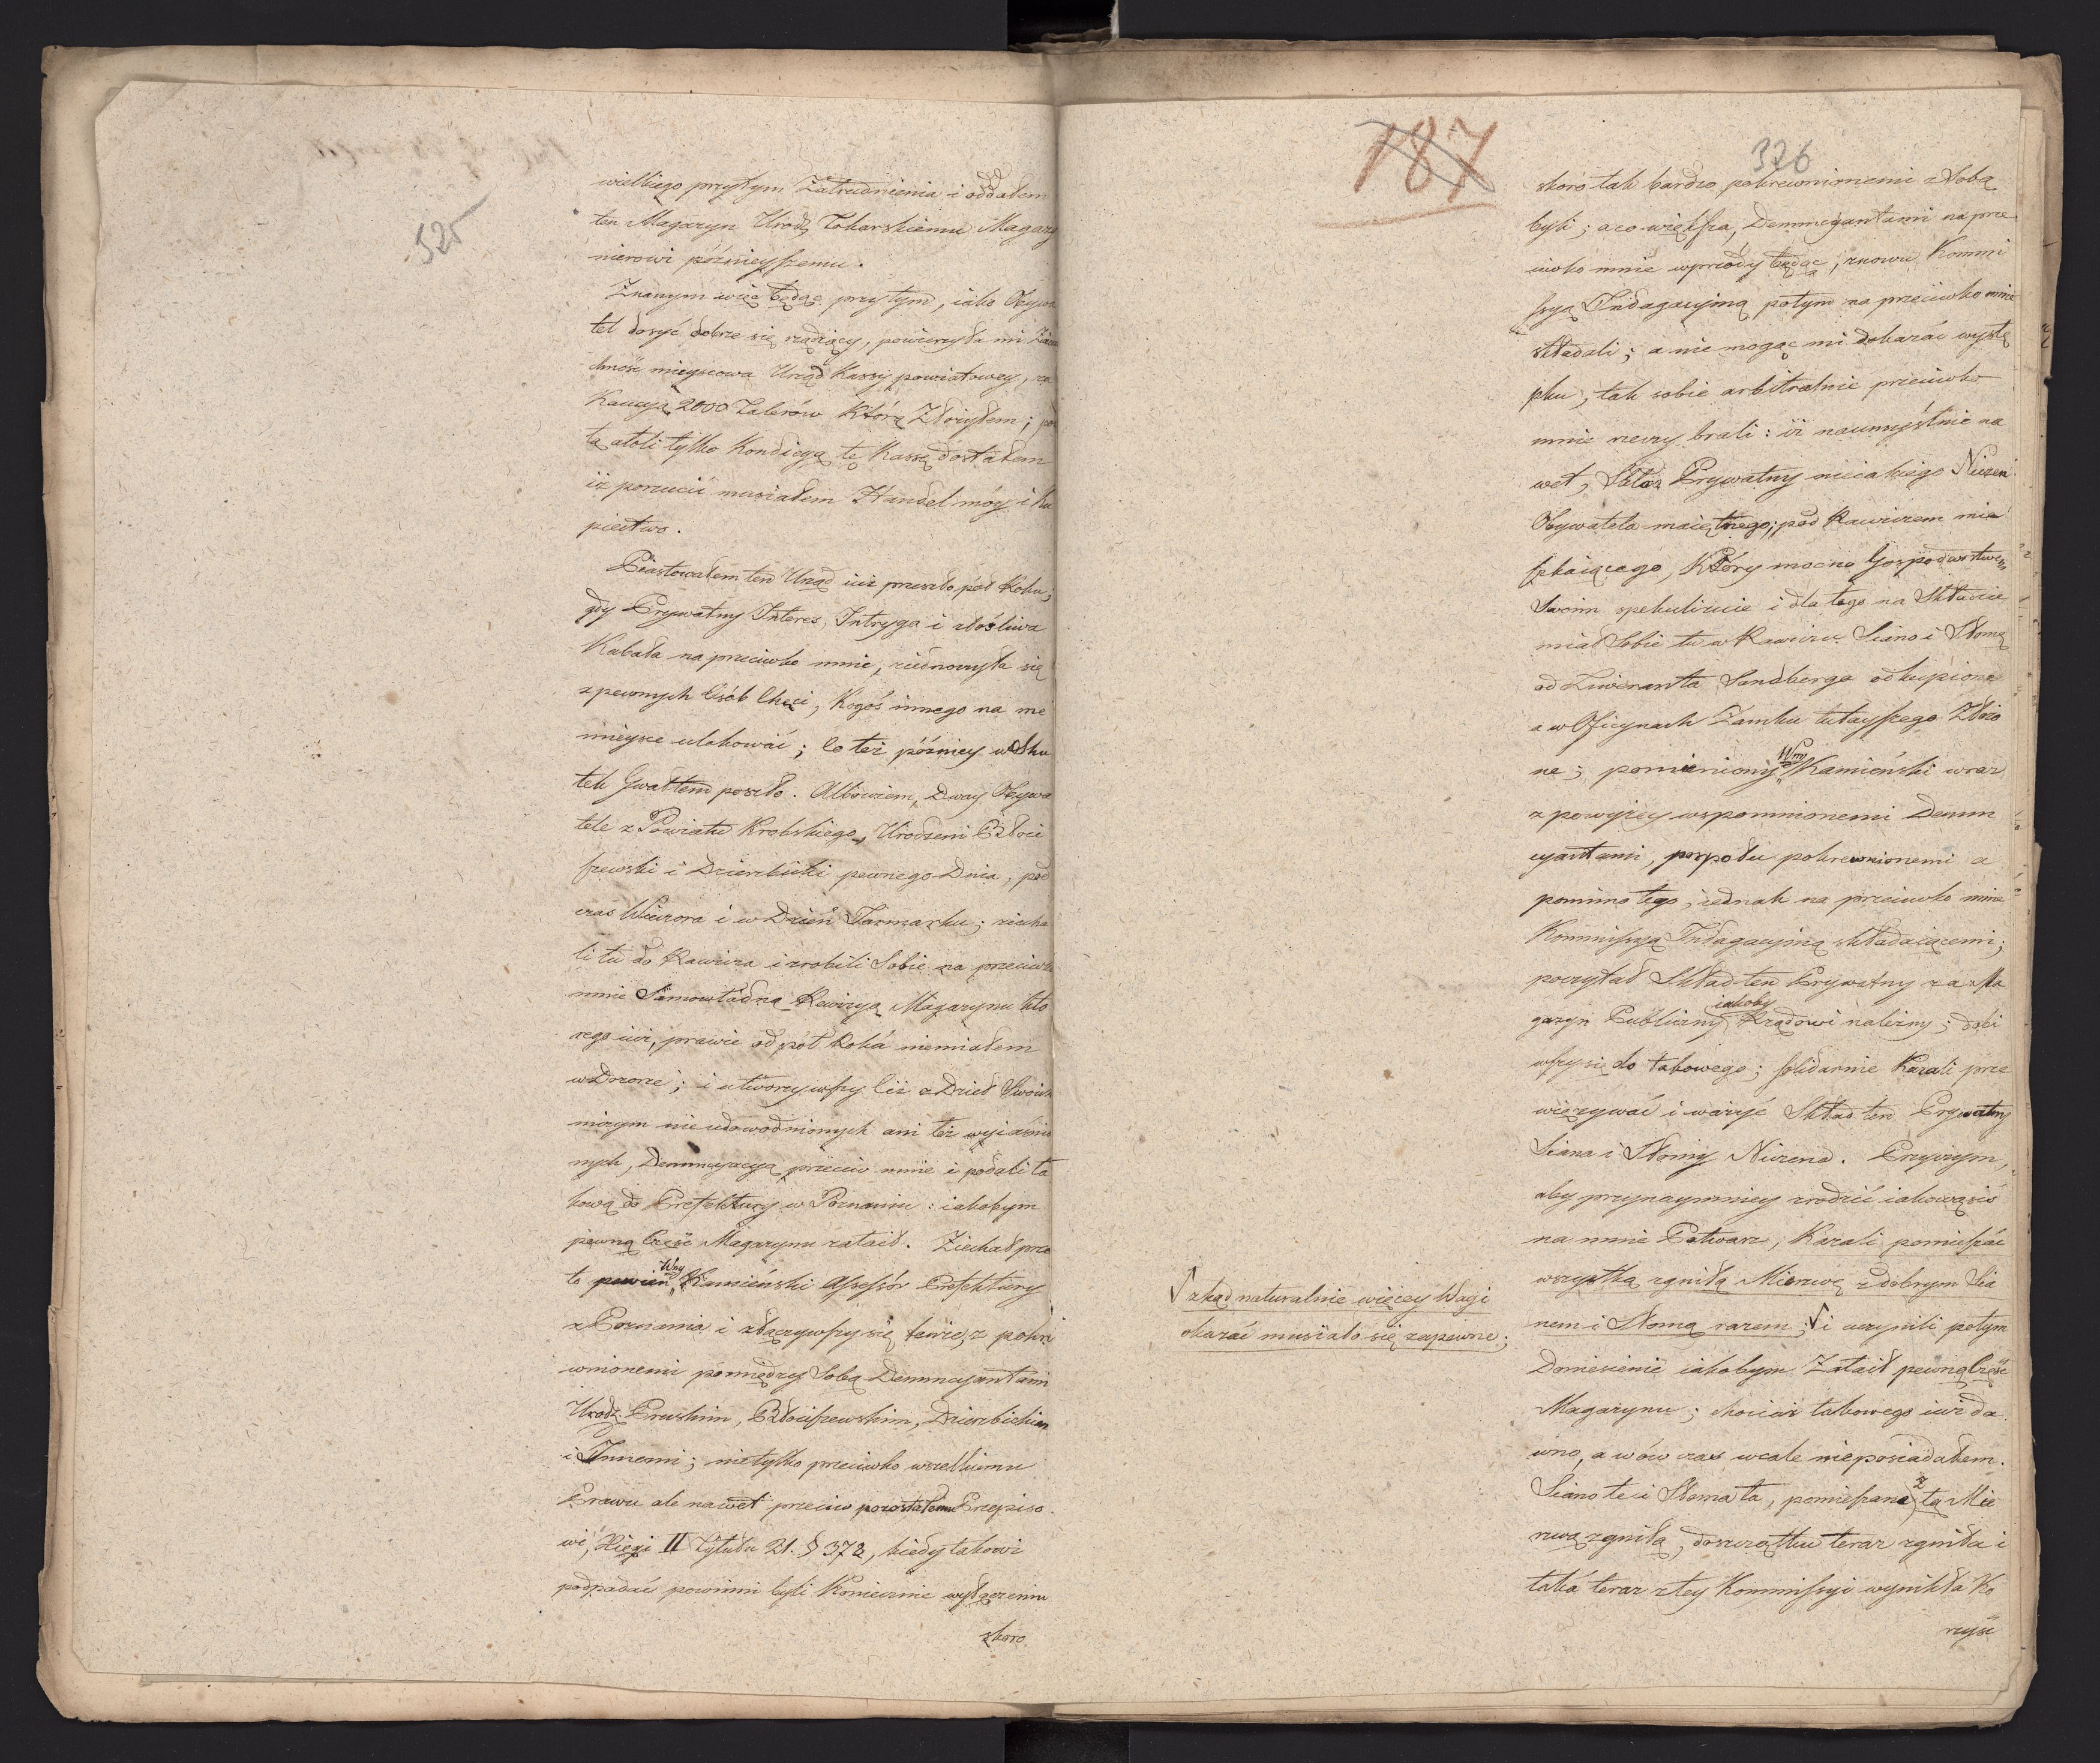 325
wielkiego przytym Zatrudnienia i oddałem
ten Magazyn Urodz. Tokarskiemu Magazy
nierowi późnieyszemu.
Znanym więc będąc przytym, iako Obywa
tel dosyć dobrze się rządzący, powierzyła mi Zwie
chność mieyscowa Urząd Kassy powiatowey, za
Kaucyą 2000 Talerów którą Złożyłem; pod
tą atoli tylko Kondicyą tę Kassę dostałem
iż porzucić musiałem Handel móy i ku
piectwo.
Piastowałem ten Urząd iuż przeszło pół Roku;
gdy Prywatny Interes, Intryga i złośliwa
Kabała na przeciwko mnie, ziednoczyła się
z pewnych Osób Chęci, Kogoś innego na me
mieysce ulokować; Co też późniey w Sku
tek Gwałtem poszło. Albowiem, Dway Obywa
tele z Powiatu Krobskiego, Urodzeni Człoci
szewski i Dzierzbicki pewnego Dnia, pod
czas Wieczora i w Dzień Jarmarku; ziecha
li tu do Rawicza i zrobili Sobie na przeciwko
mnie Samowładną Rewizyą Magazynu któ
rego iuż, prawie od pół Roku niemiałem
w Dozorze; i utworzywszy też z Dzieł Swoich
niczym nie udowodnionych ani też wyiaśnio
nych, Denuncyacyą przeciw mnie i podali ta
kową do Prefektury w Poznaniu: iakobym
pewną Część Magazynu zataił. Ziechał prze
to pewien Wny Kamieński Assessor Prefektury
z Poznania i złączywszy się tawiez z pokre
wnionemi pomiędzy Sobą Denuncyantami
Urodz. Pruskim, Człociszewskim, Dzierzbickim
i Innemi; nietylko przeciwko wszelkiemu
Prawu ale nawet przeciw pozostałemu Przepiso
wi, Xięgi II Tytułu 21. § 378, kiedy takowi
podpadać powinni byli Koniecznie wyłączeniu
skoro
187
326
skoro tak bardzo pokrewnionemi z Sobą
byli; a co większa, Denuncyantami na prze
ciwko mnie wprzódy będąc, znowu Kommi
ssyą Indagacyiną potym na przeciwko mnie
składali; a nie mogąc mi dokazać wystę
pku, tak sobie arbitralnie przeciwko
mnie rzeczy brali: iż naumyślnie na
wet, Skład Prywatny nieiakiego Niczena
Obywatela maiętnego, pod Rawiczem mie
szkaiącego, Który mocno Gospodarstwem
Swoim spekuliruie i dla tego na Składzie
miał Sobie tu w Rawiczu Siano i Słomę
od Liweranta Sandberga odkupione
a w Oficynach Zamku tutayszego Złożo
ne; pomieniony Wny Kamieński wraz
z powyżey wspomnionemi Denun
cyantami, pospołu pokrewnionemi a
pomimo tego, iednak na przeciwko mnie
Kommissyą Indagacyiną składaiącemi;
poczytał Skład ten Prywatny za Ma
gazyn Publiczny iakoby Rządowi należny; dobi
wszy się do takowego; solidarnie Kazali prze
więzywać i ważyć Skład ten Prywatny
Siana i Słomy Niczena. Przyczym,
aby przynaymniey zrodzić iakowąsiś
na mnie Potwarz, Kazali pomieszać
wszystką zgniłą Mierzwę z dobrym Sia
nem i Słomą razem; √ i uczynili potym
√ zkąd naturalnie więcey Wagi
okazać musiało się zapewne;
Doniesienie iakobym Zataił pewną Część
Magazynu; chociaż takowego iuż da
wno, a wów czas wcale nieposiadałem.
Siano te i Słoma ta, pomieszana z tą Mie
rzwą zgniłą, doszczątku teraz zgniła i
taká teraz z tey Kommissyi wynikła Ko
rzyść